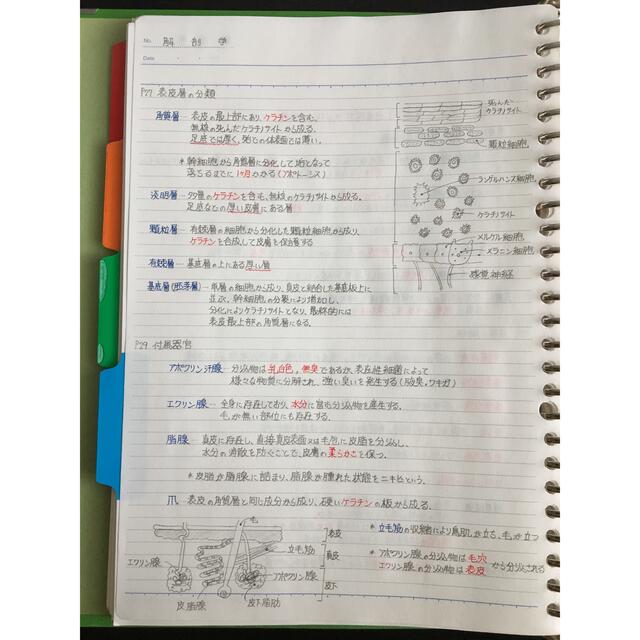 No. 解剖学
Date
P27 表皮層の分類
角質層 — 表皮の最上部にあり、ケラチンを含む。
無核の死んだケラチノサイトから成る。
足底では厚く、
*幹細胞から角質層に分化して垢となって
落ちるまでに1ヶ月かかる(アポトーシス)
淡明層 — 多量のケラチンを含む、無核のケラチノサイトから成る。
足底などの厚い皮膚にある層
顆粒層 — 有棘層の細胞から分化した顆粒細胞から成り、
ケラチンを合成して皮膚を保護する
有棘層 — 基底層の上にある厚い層
基底層(胚芽層) — 単層の細胞から成り、真皮と結合した基底板上に
並ぶ。幹細胞の分裂により増加し、
分化によりケラチノサイトとなり、最終的には
表皮最上部の角質層になる。
死んだ
ケラチノサイト
顆粒細胞
ランゲルハンス細胞
ケラチノサイト
メルケル細胞
メラニン細胞
感覚神経
P29 付属器官
アポクリン汗腺 — 分泌物は乳白色。無臭であるが、表在性細菌によって
様々な物質に分解され、強い臭いを発生する(腋臭,ワキガ)
エクリン腺 — 全身に存在しており、水分に富む分泌物を産生する。
毛が無い部位にも存在する。
脂腺 — 真皮に存在し、直接真皮表面又は毛包に皮脂を分泌し、
水分の消散を防ぐことで、皮膚の柔らかさを保つ。
*皮脂が脂腺に詰まり、脂腺が腫れた状態をニキビという。
爪 — 表皮の角質層と同じ成分から成り、硬いケラチンの板から成る。
毛
立毛筋
エクリン腺
アポクリン腺
皮脂腺
皮下脂肪
表皮
真皮
皮下
*立毛筋の収縮により鳥肌が立ち、毛が立つ
*アポクリン腺の分泌物は毛穴
エクリン腺の分泌物は表皮から分泌される